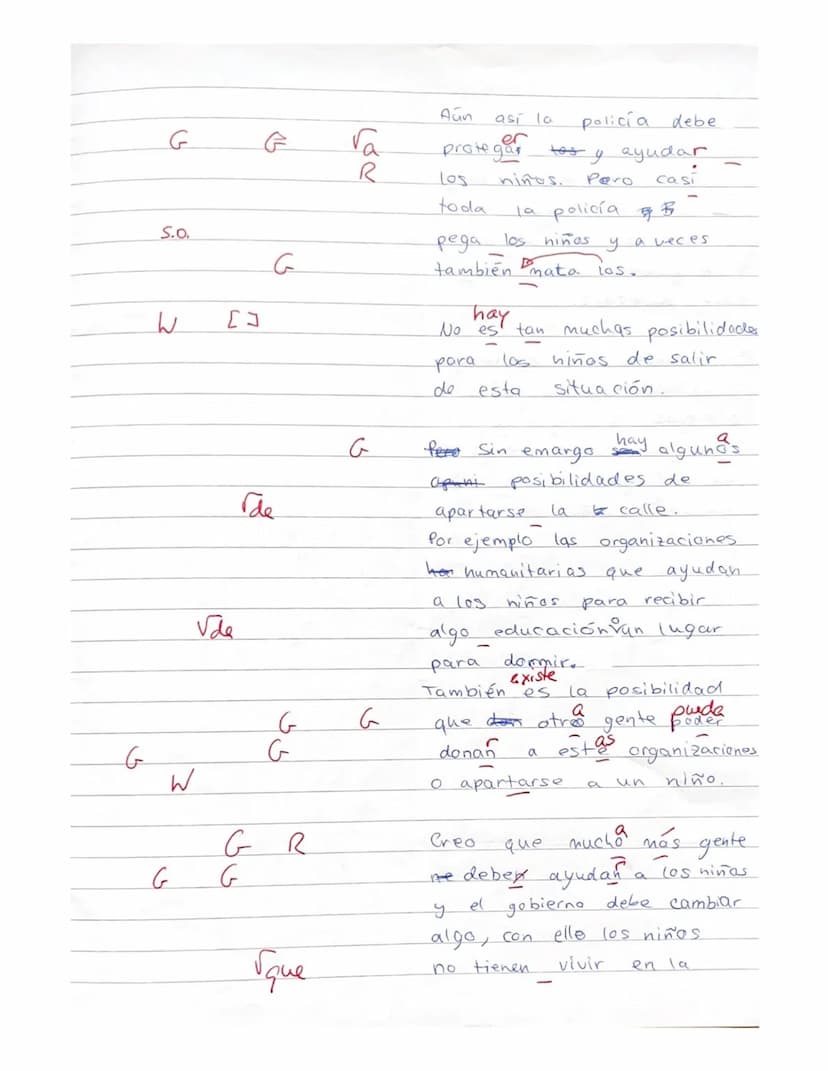 Aún así la policía debe
G G √a protegar er y ayudar
R los niños. Pero casi
toda la policía
S.O. pega los niños y a veces
G también mata los.
W [] No es hay tan muchas posibilidades
para los niños de salir
de esta situación.
G Pero Sin emargo hay algunos a
posibilidades de
√de apartarse la calle.
Por ejemplo las organizaciones
humanitarias que ayudan
a los niños para recibir
√de algo educación o un lugar
para dormir.
También es existe la posibilidad
G G que otro a gente poder pueda
G G donan r a este as organizaciones
W o apartarse a un niño.
G R Creo que mucho a más gente
G G ne deben ayudan r a los niños
y el gobierno debe cambiar
algo, con ello los niños
√que no tienen vivir en la